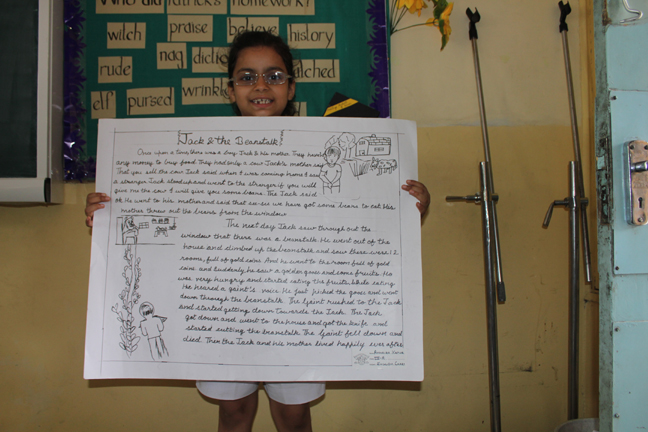 Who did Patrick's homework?
witch praise believe history
nag
rude
wrinkle
elf pursed
Jack & the Beanstalk
Once upon a time, there was a boy Jack & his mother. They
any money to buy food. They had only a cow. Jack's mother said
that you sell the cow. Jack said when I was coming home I saw
a stranger. Jack stood up and went to the stranger if you will
give me the cow I will give you some beans. The Jack said
ok. He went to his mother and said that see we have got some beans to eat. His
mother threw out the beans from the window.
The next day Jack saw through out the
window that there was a beanstalk. He went out of the
house and climbed up the beanstalk and saw there were 12
rooms, full of gold coins. And he went to the room full of gold
coins and suddenly he saw a golden goose and some fruits. He
was very hungry and started eating the fruits. While eating
He heared a giant's voice. He just picked the goose and went
down through the beanstalk. The Giant rushed to the Jack
and started getting down towards the Jack. The Jack
got down and went to the house and got the knife and
started cutting the beanstalk. The Giant fell down and
died. Then the Jack and his mother lived happily ever after